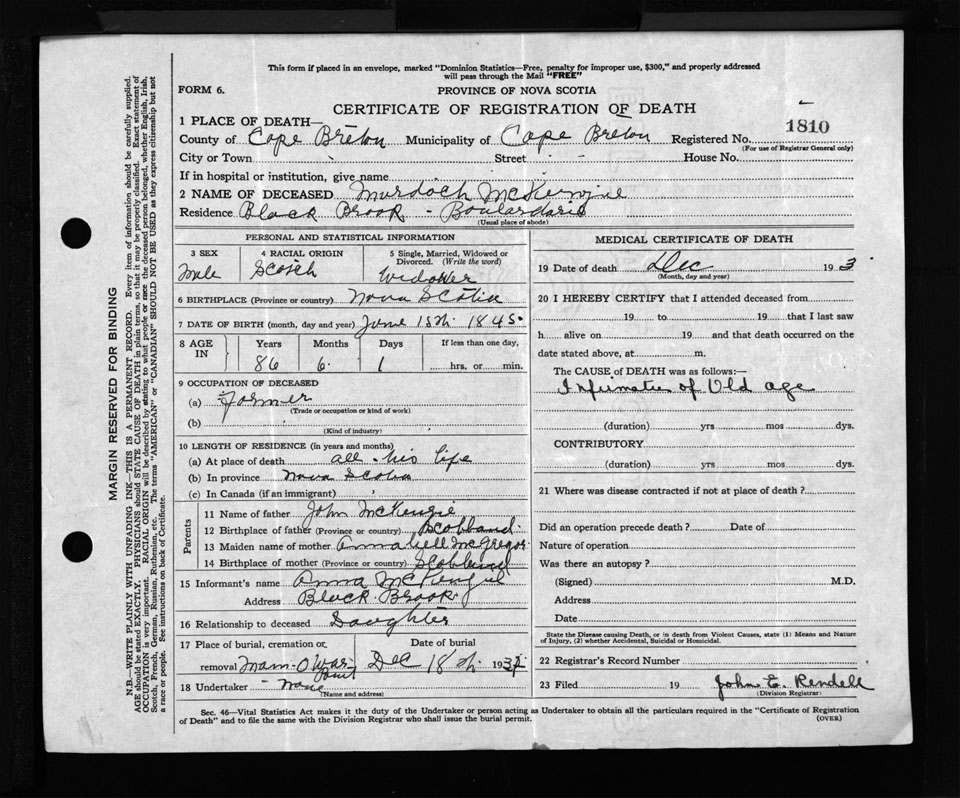 This form if placed in an envelope, marked "Dominion Statistics—Free, penalty for improper use, $300," and properly addressed
will pass through the Mail "FREE"
FORM 6.
PROVINCE OF NOVA SCOTIA
CERTIFICATE OF REGISTRATION OF DEATH
1 PLACE OF DEATH—
County of Cape Breton Municipality of Cape Breton Registered No. 1810
(For use of Registrar General only)
City or Town Street House No.
If in hospital or institution, give name
2 NAME OF DECEASED Murdoch McKenzie
Residence Black Brook - Boulardarie
(Usual place of abode)
PERSONAL AND STATISTICAL INFORMATION
3 SEX Male
4 RACIAL ORIGIN Scotch
5 Single, Married, Widowed or Divorced. (Write the word) Widower
6 BIRTHPLACE (Province or country) Nova Scotia
7 DATE OF BIRTH (month, day and year) June 15th 1845.
8 AGE IN
Years Months Days If less than one day,
86 6 1 hrs. or min.
9 OCCUPATION OF DECEASED
(a) Farmer
(Trade or occupation or kind of work)
(b)
(Kind of industry)
10 LENGTH OF RESIDENCE (in years and months)
(a) At place of death all his life
(b) In province Nova Scotia
(c) In Canada (if an immigrant)
Parents
11 Name of father John McKenzie
12 Birthplace of father (Province or country) Scotland
13 Maiden name of mother Annabell McGregor
14 Birthplace of mother (Province or country) Scotland
15 Informant's name Anna McKenzie
Address Black Brook
16 Relationship to deceased Daughter
17 Place of burial, cremation or removal Man-O War Point
Date of burial Dec 18th 193
18 Undertaker None
(Name and address)
MEDICAL CERTIFICATE OF DEATH
19 Date of death Dec 19 3
(Month, day and year)
20 I HEREBY CERTIFY that I attended deceased from
19 to 19 that I last saw
h alive on 19 and that death occurred on the
date stated above, at m.
The CAUSE of DEATH was as follows:—
of Old age
(duration) yrs mos dys.
CONTRIBUTORY
(duration) yrs mos dys.
21 Where was disease contracted if not at place of death?
Did an operation precede death? Date of
Nature of operation
Was there an autopsy?
(Signed) M.D.
Address
Date
State the Disease causing Death, or in death from Violent Causes, state (1) Means and Nature
of Injury, (2) whether Accidental, Suicidal or Homicidal.
22 Registrar's Record Number
23 Filed 19 John E. Rendell
(Division Registrar)
Sec. 46—Vital Statistics Act makes it the duty of the Undertaker or person acting as Undertaker to obtain all the particulars required in the "Certificate of Registration
of Death" and to file the same with the Division Registrar who shall issue the burial permit.
(OVER)
MARGIN RESERVED FOR BINDING
N.B.—WRITE PLAINLY WITH UNFADING INK—THIS IS A PERMANENT RECORD. Every item of information should be carefully supplied.
AGE should be stated EXACTLY. PHYSICIANS should STATE CAUSE OF DEATH in plain terms, so that it may be properly classified. Exact statement of
OCCUPATION is very important. RACIAL ORIGIN will be described by stating to what people or race the deceased person belonged, whether English, Irish,
Scotch, French, German, Russian, Ruthenian, etc. The terms "AMERICAN" or "CANADIAN" SHOULD NOT BE USED as they express citizenship but not
a race or people. See instructions on back of Certificate.